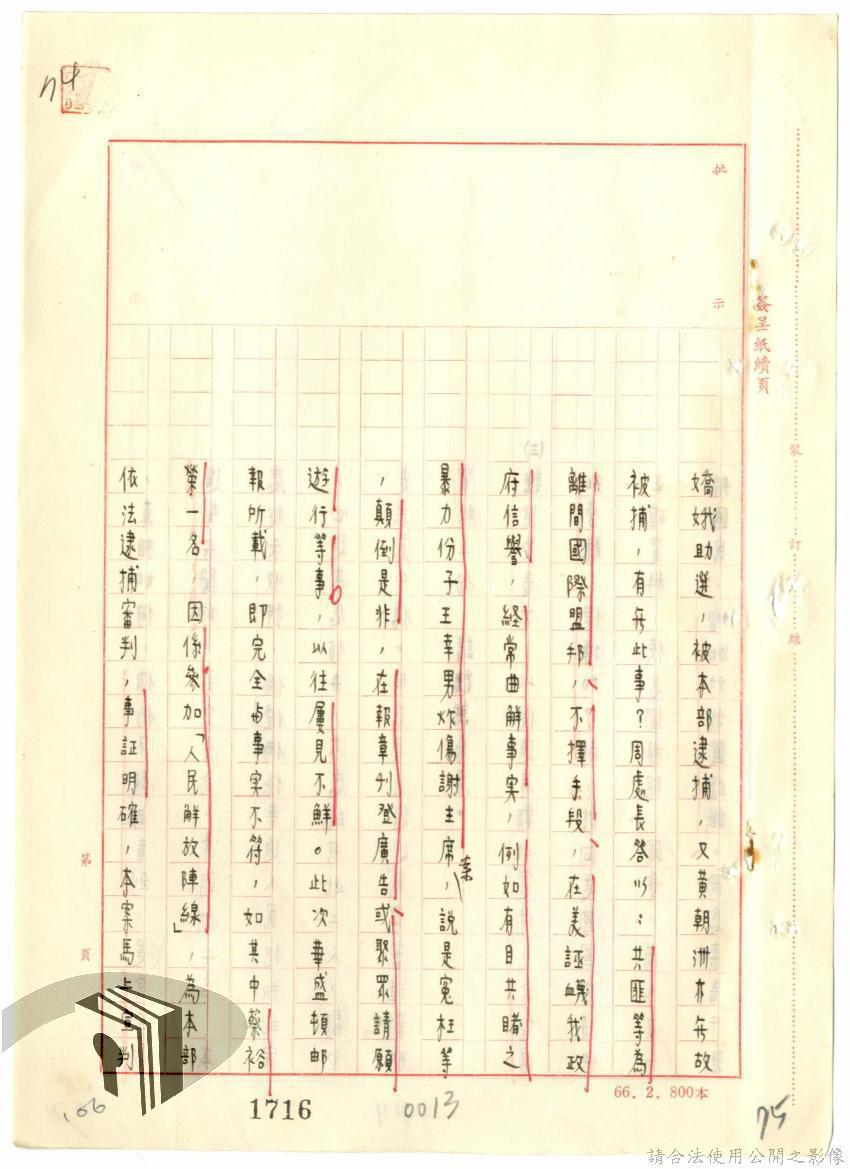 74
批示
簽呈紙續頁
裝訂線
第頁
(三)
嬌娥助選，被本部逮捕，又黄朝洲亦無故
被捕，有無此事？周處長答以：共匪等為
離間國際盟邦，不擇手段，在美誣衊我政
府信譽，経常曲解事実，例如有目共睹之
暴力份子王幸男炸傷謝主席案，說是冤枉等
，顛倒是非，在報章刋登廣告或聚眾請願
遊行等事，以往屢見不鮮。此次華盛頓郵
報所載，即完全与事実不符，如其中蔡裕
榮一名，因係參加「人民解放陣線」，為本部
依法逮捕審判，事証明確，本案馬上宣判
66．2．800本
166
1716
0013
75
請合法使用公開之影像